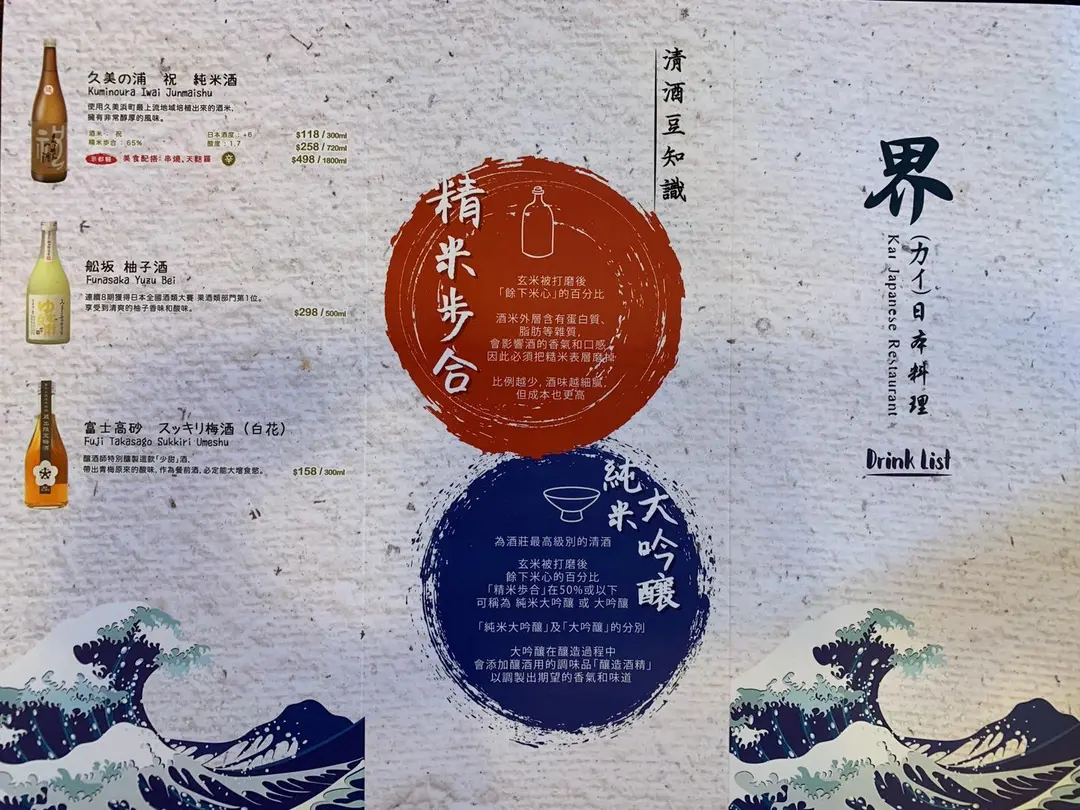 久美の浦 祝 純米酒
Kuminoura Iwai Junmaishu
使用久美浜町最上流地域培植出來的酒米、
擁有非常醇厚的風味。
酒米 : 祝 日本酒度 : +6
精米步合 : 65% 酸度 : 1.7
京都縣 美食配搭: 串燒、天麩羅 辛
$118 / 300ml
$258 / 720ml
$498 / 1800ml
舩坂 柚子酒
Funasaka Yuzu Bei
連續8期獲得日本全國酒類大賽 果酒類部門第1位。
享受到清爽的柚子香味和酸味。
$298 / 500ml
富士高砂 スッキリ梅酒 (白花)
Fuji Takasago Sukkiri Umeshu
釀酒師特別釀製這款「少甜」酒,
帶出青梅原來的酸味, 作為餐前酒, 必定能大增食慾。
$158 / 300ml
清酒豆知識
精米步合
玄米被打磨後
「餘下米心」的百分比
酒米外層含有蛋白質、
脂肪等雜質,
會影響酒的香氣和口感,
因此必須把糙米表層磨掉
比例越少, 酒味越細膩,
但成本也更高
純米
大吟釀
為酒莊最高級別的清酒
玄米被打磨後
餘下米心的百分比
「精米步合」在50%或以下
可稱為 純米大吟釀 或 大吟釀
「純米大吟釀」及「大吟釀」的分別
大吟釀在釀造過程中
會添加釀酒用的調味品「釀造酒精」
以調製出期望的香氣和味道
界
(カイ)日本料理
Kai Japanese Restaurant
Drink List